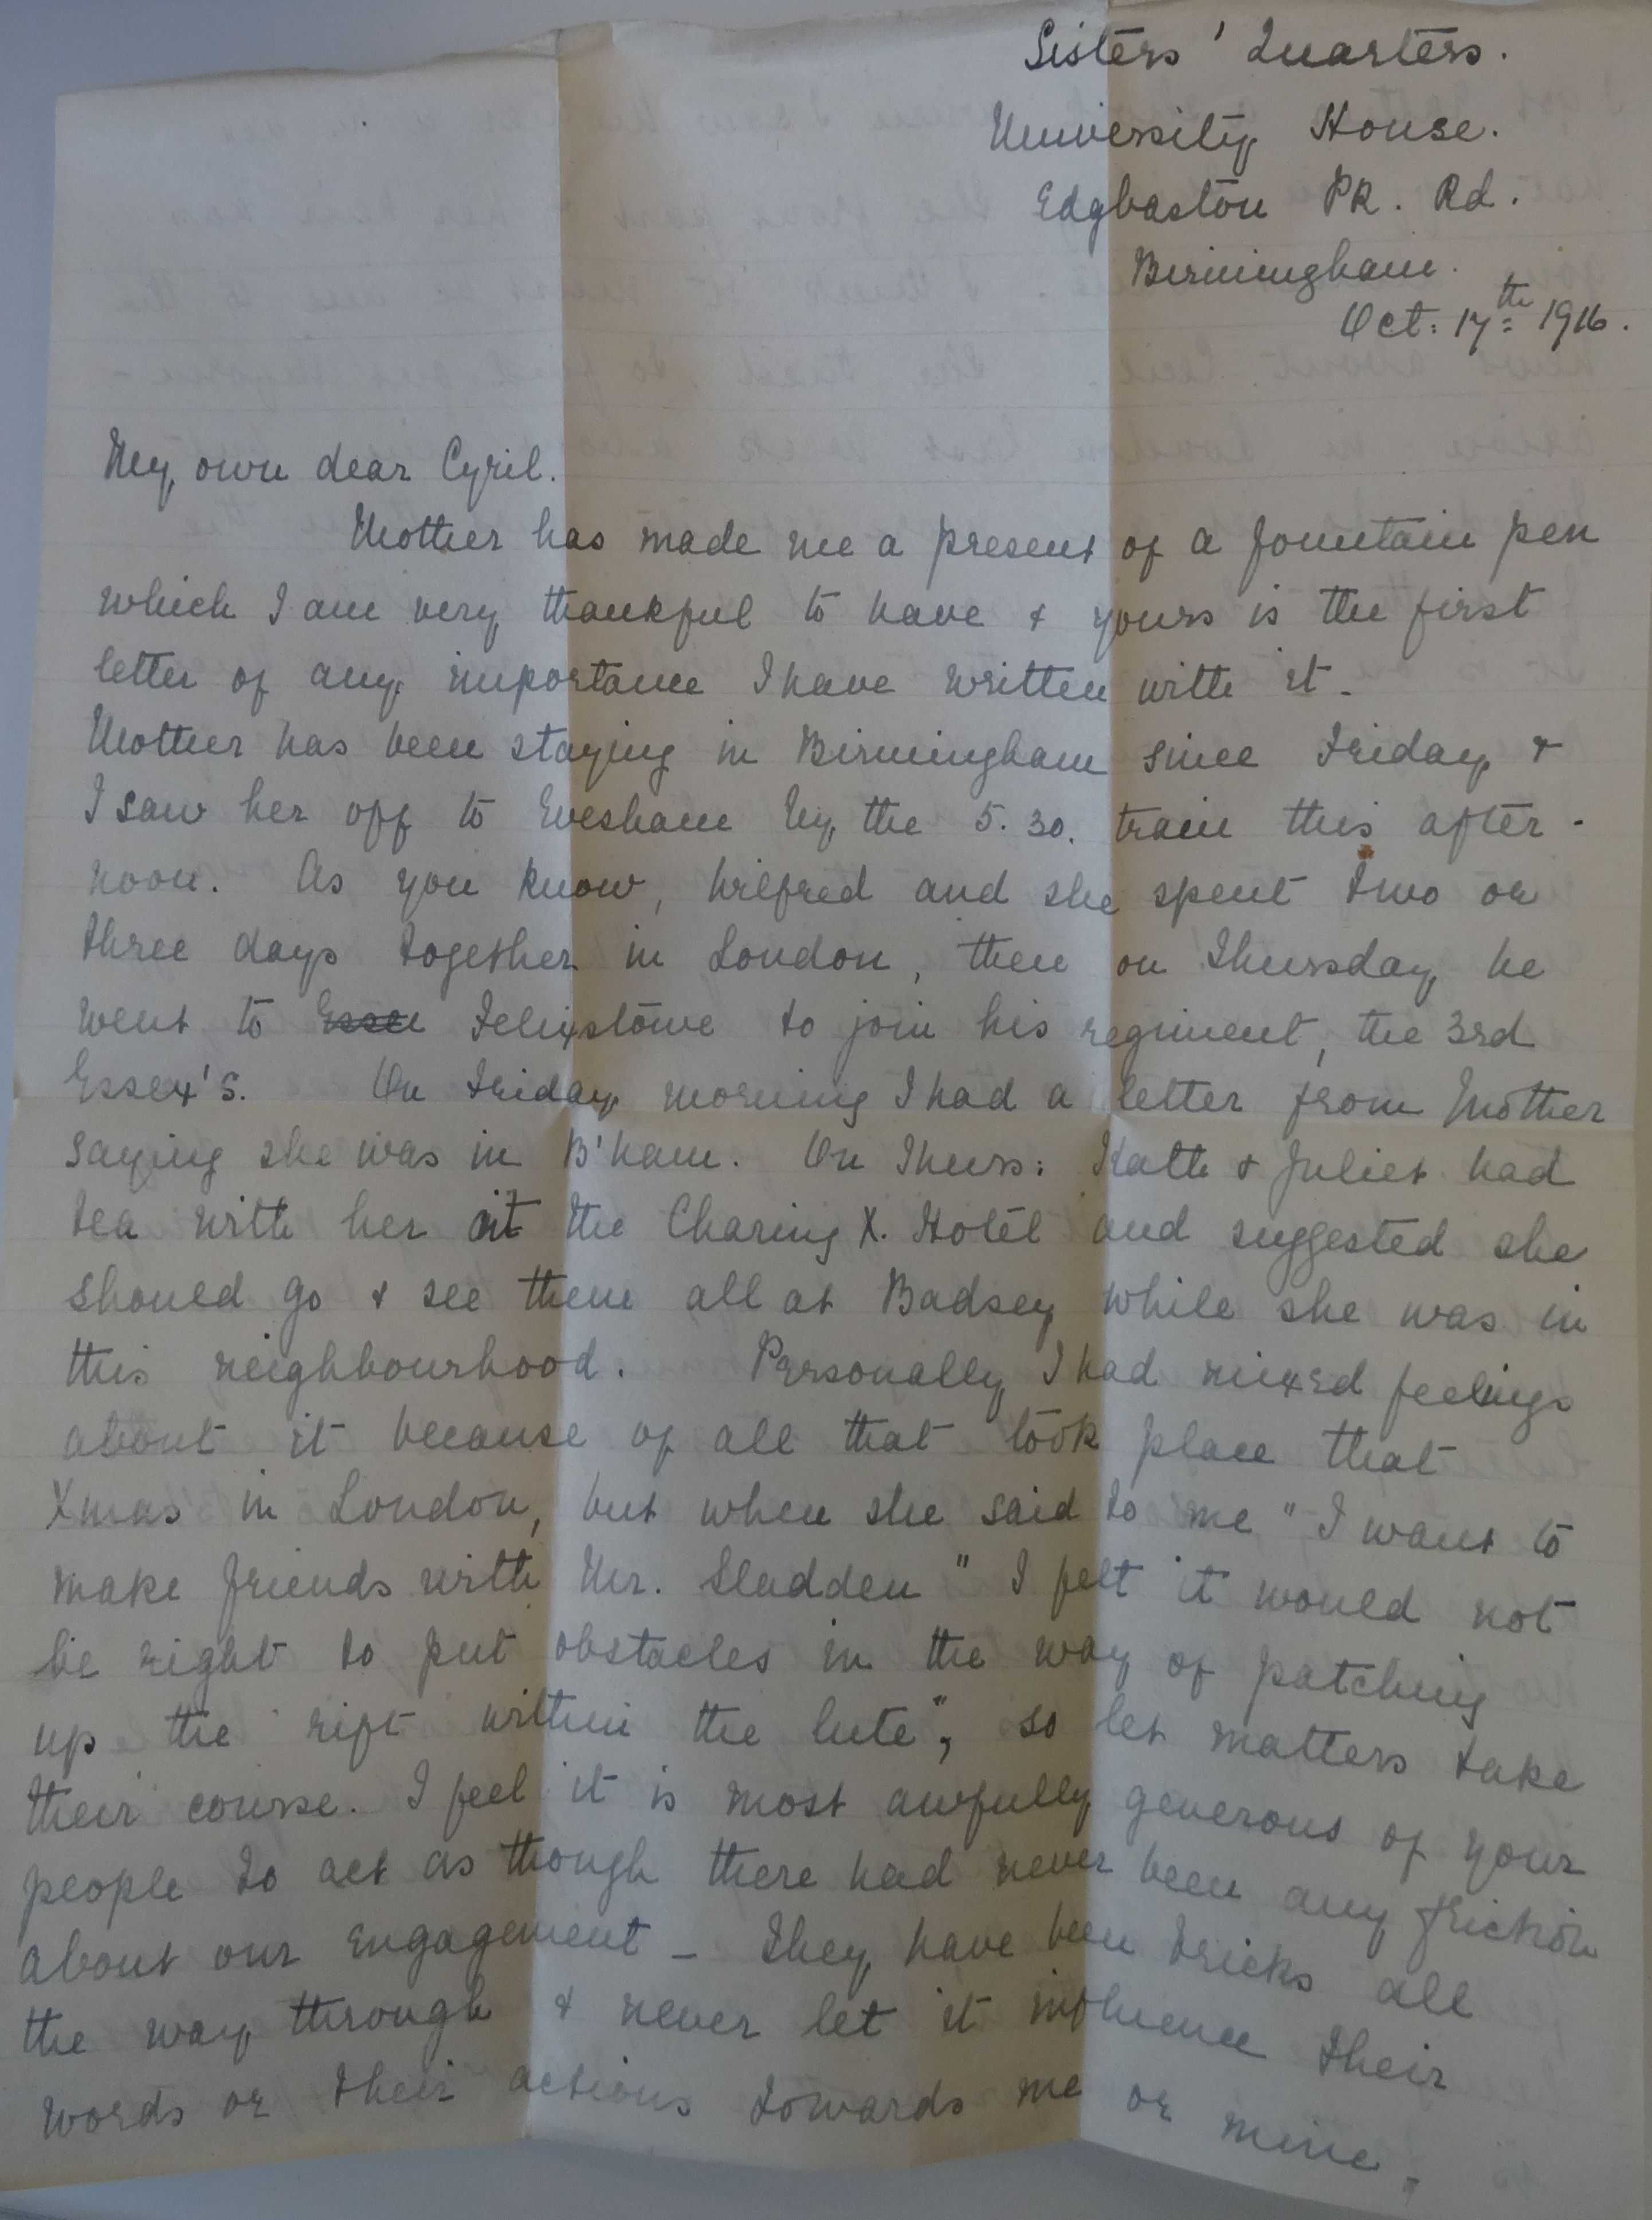 Sisters' Quarters.
University House.
Edgbaston PK. Rd.
Birmingham.
Oct: 17th 1916.
My own dear Cyril.
Mother has made me a present of a fountain pen
which I am very thankful to have & yours is the first
letter of any importance I have written with it -
Mother has been staying in Birmingham since Friday &
I saw her off to Evesham by the 5.30. train this after-
noon. As you know, Wilfred and she spent two or
three days together in London, then on Thursday he
went to Essex Felixstowe to join his regiment, the 3rd
Essex's. On Friday morning I had a letter from Mother
saying she was in B'ham. On Thurs: Kath & Juliet had
tea with her at the Charing X. Hotel and suggested she
should go & see them all at Badsey while she was in
this neighbourhood. Personally I had mixed feelings
about it because of all that took place that
Xmas in London, but when she said to me "I want to
make friends with Mr. Sladden" I felt it would not
be right to put obstacles in the way of patching
up the "rift within the lute", so let matters take
their course. I feel it is most awfully generous of your
people to act as though there had never been any friction
about our engagement - They have been bricks all
the way through & never let it influence their
words or their actions towards me or mine.